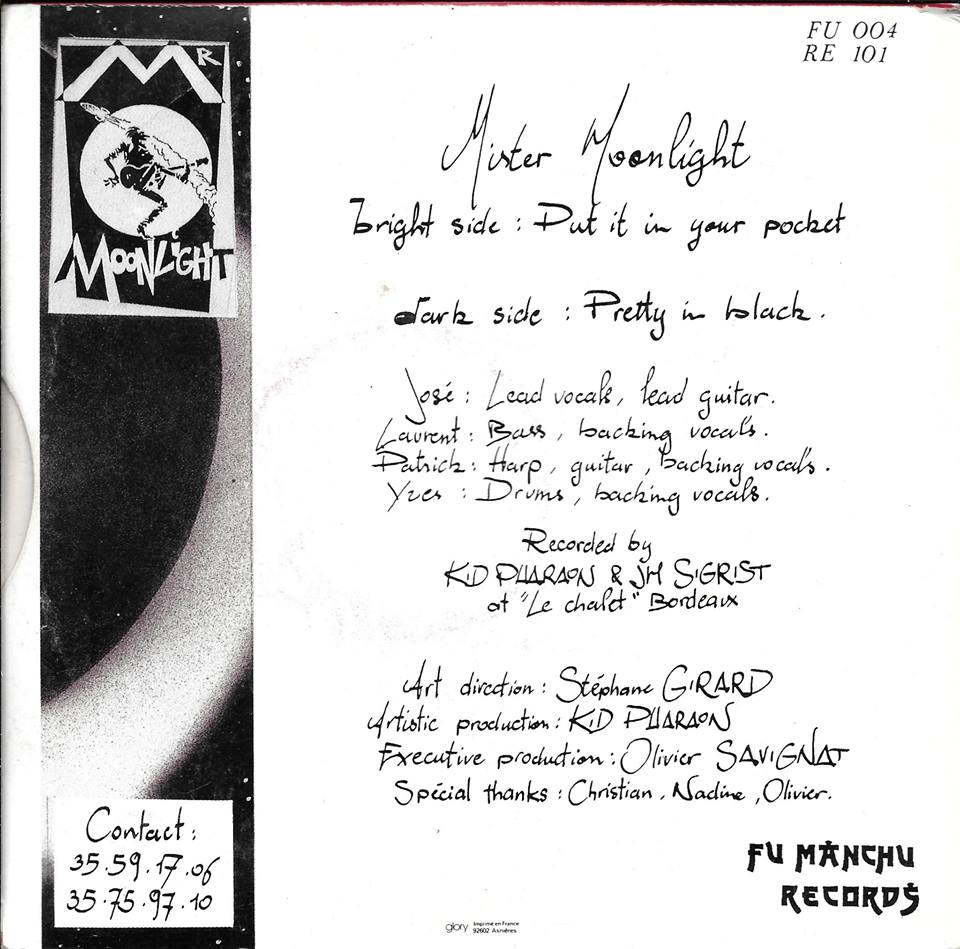 FU 004
RE 101
MR
MOONLIGHT
Mister Moonlight
bright side : Put it in your pocket
dark side : Pretty in black.
José : Lead vocals, lead guitar.
Laurent : Bass, backing vocal's.
Patrick : Harp, guitar, backing vocal's.
Yves : Drums, backing vocals.
Recorded by
KiD PHARAON & JH SiGRIST
at "Le chalet" Bordeaux
Art direction : Stéphane GiRARD
Artistic production : KiD PHARAON
Executive production : Olivier SAViGNAT
Spécial thanks : Christian, Nadine, Olivier.
Contact :
35.59.17.06
35.75.97.10
FU MANCHU
RECORDS
glory Imprimé en France
92602 Asnières